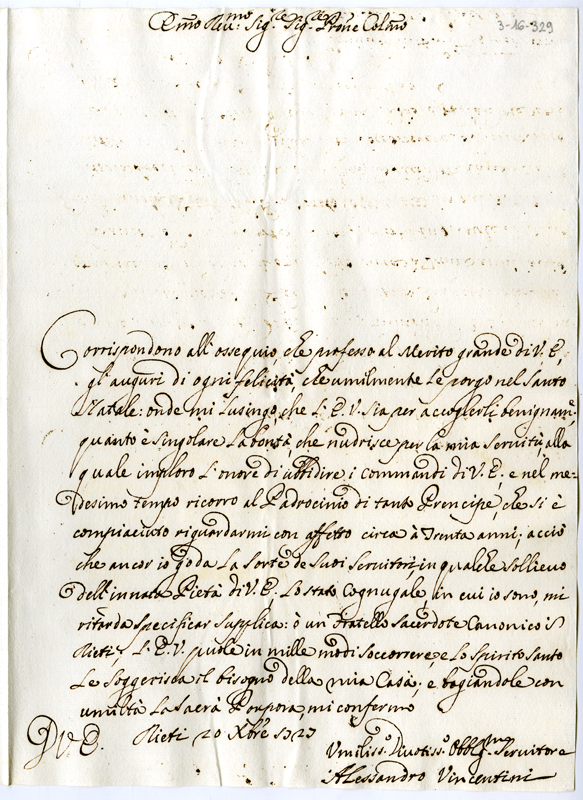 3-16-329
Emo Reu.mo Sig.re Sig.re Prone Colmo
Corrispondono all'ossequio, che professo al Merito grande di V. E.,
gl'auguri di ogni felicità, che umilmente Le porgo nel Santo
Natale: onde mi Lusingo, che L'E. V. sia per accoglierli benignam.te
quanto è singolare La bontà, che nudrisce per la mia Seruitù, alla
quale imploro L'onore di ubbidire i commandi di V. E. e nel me=
desimo tempo ricorro al Padrocinio di tanto Prencipe, che si è
compiaciuto riguardarmi con affetto circa à Trenta anni; acciò
che ancor io goda La sorte de Suoi Seruitori, in qualche sollieuo
dell'innata Pietà di V. E. Lo stato Cognugale, in cui io sono, mi
ritarda specificar supplica: ò un Fratello Sacerdote Canonico in
Rieti. L'E. V. puole in mille modi soccorrere, e Lo Spirito Santo
Le soggerisca il bisogno della mia Casa; e bagiandole con
umiltà La Sacra Porpora, mi confermo
D. V. E. Rieti 20 Xbre 1727
Vmiliss.o Diuotiss.o Obblg.mo Seruitore
Alessandro Vincentini